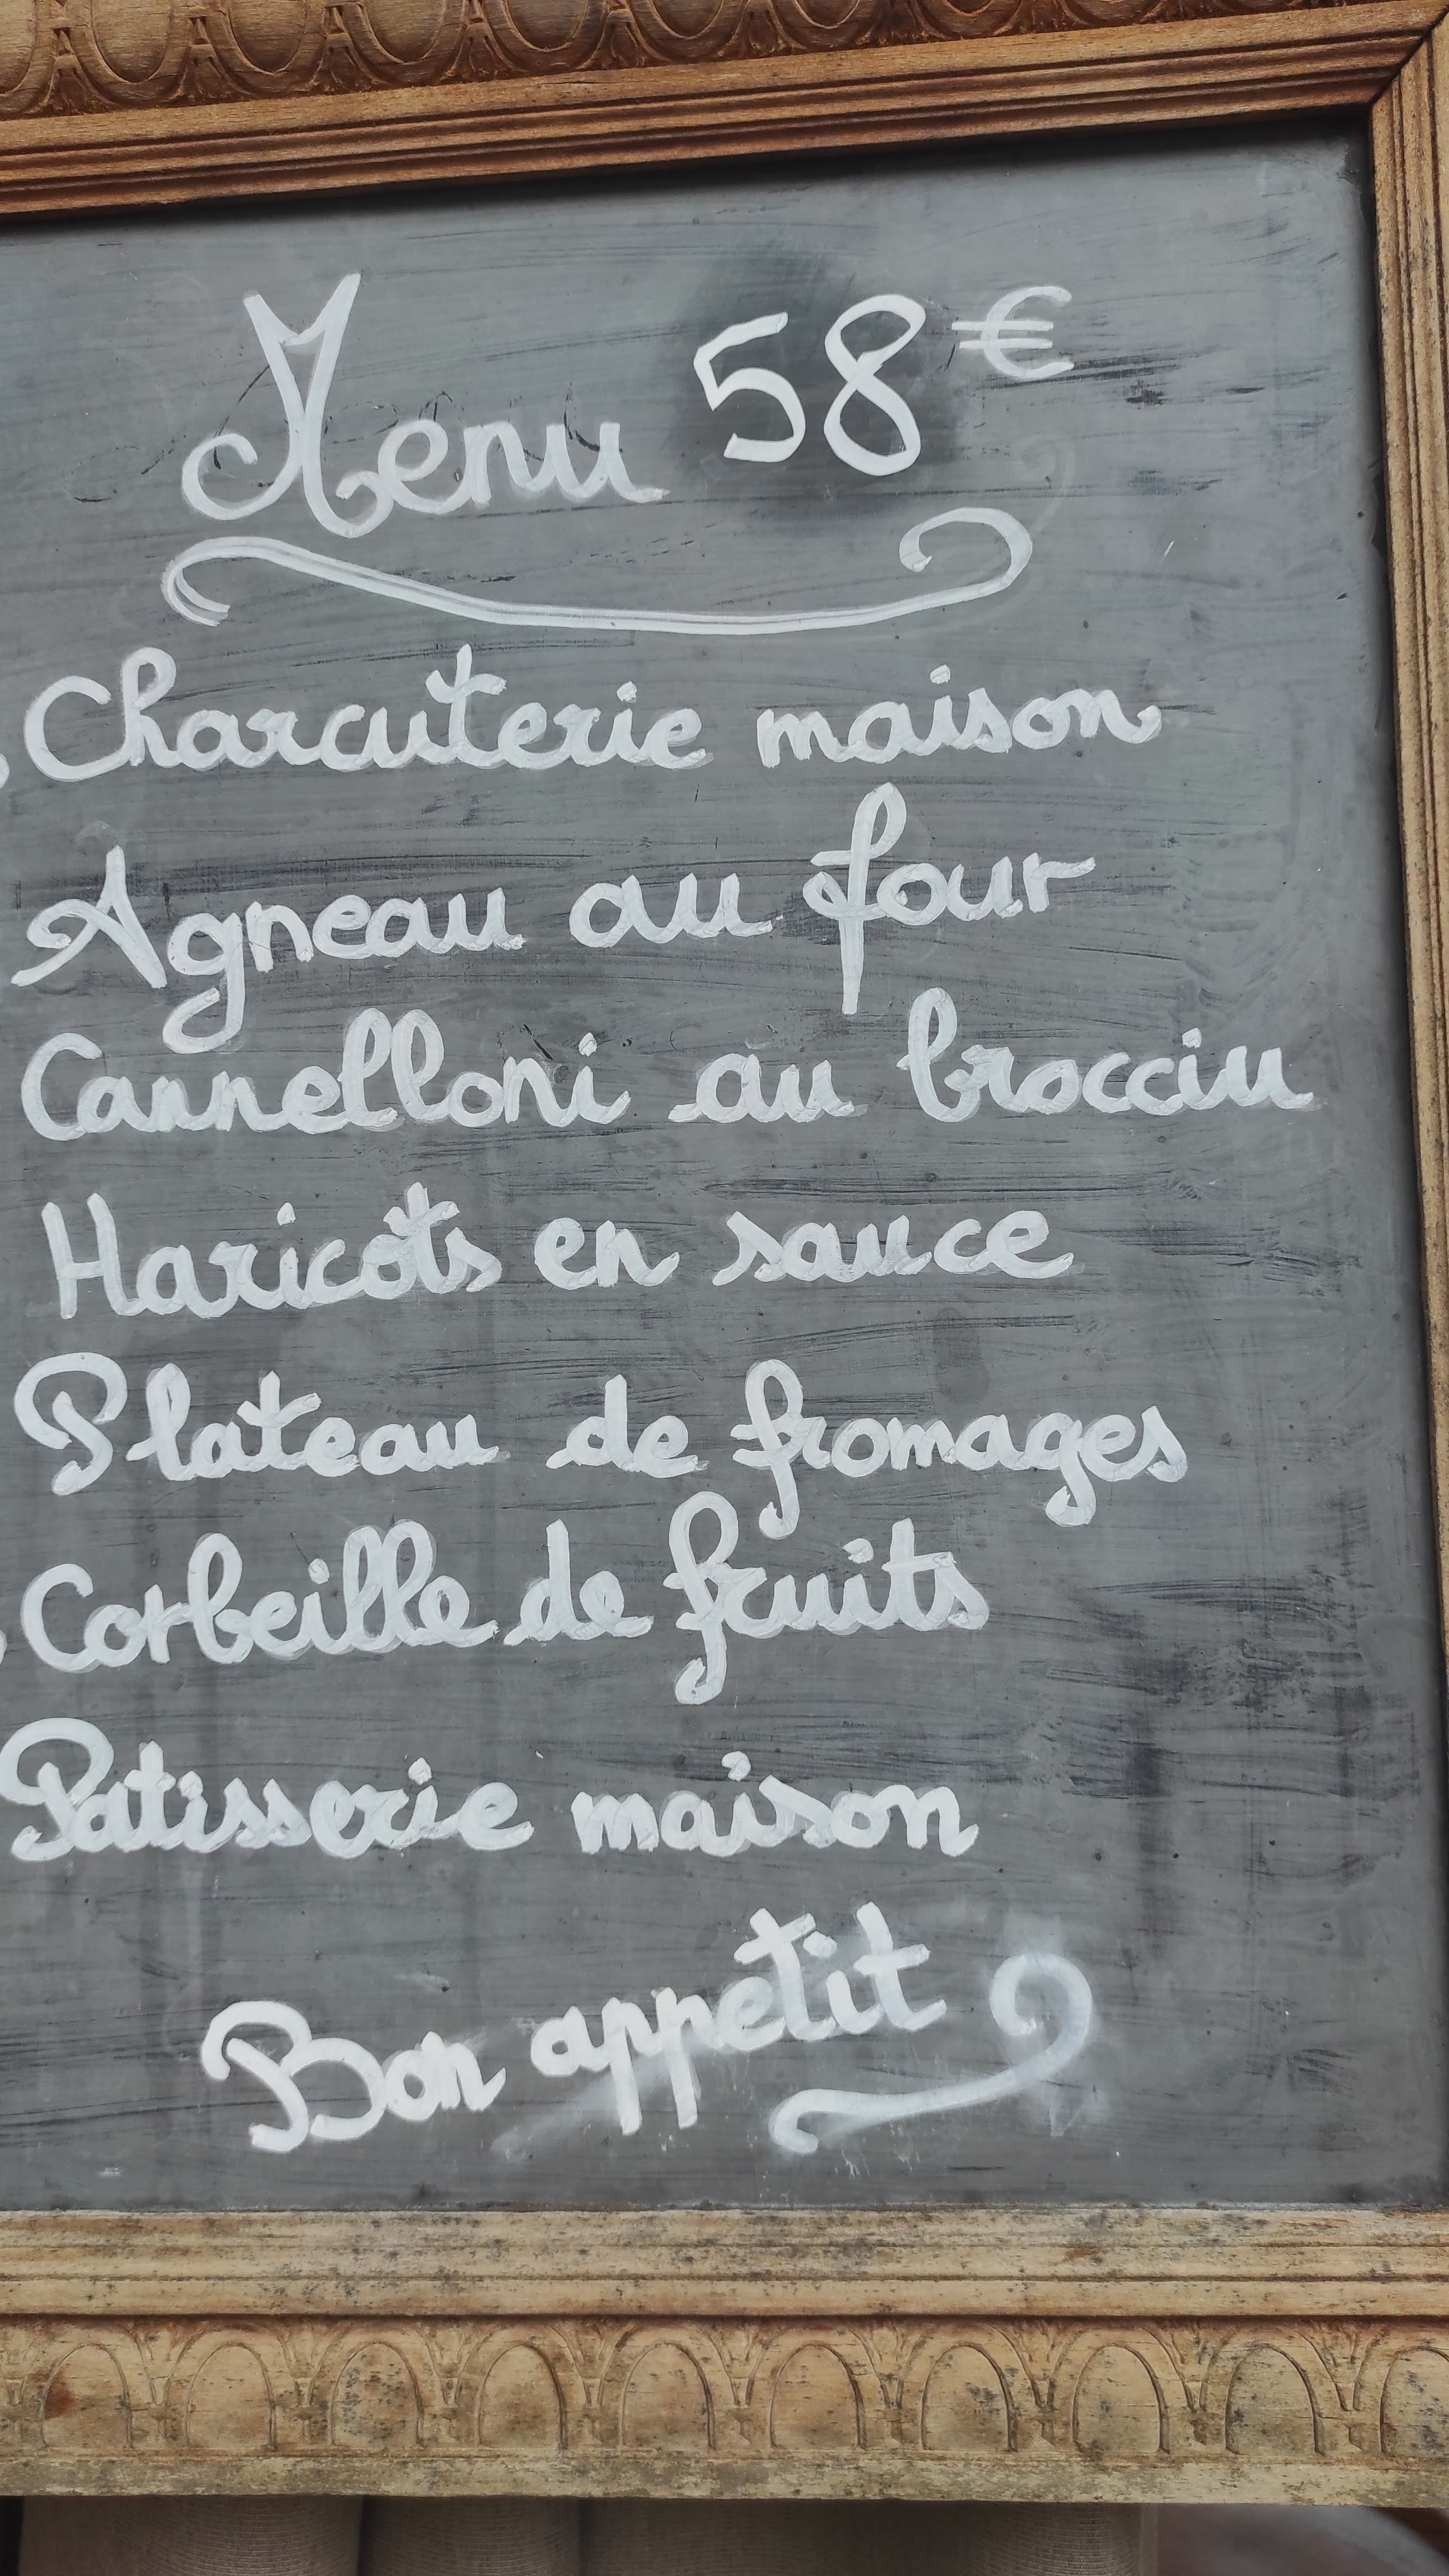 Menu 58€
Charcuterie maison
Agneau au four
Cannelloni au brocciu
Haricots en sauce
Plateau de fromages
Corbeille de fruits
Patisserie maison
Bon appetit